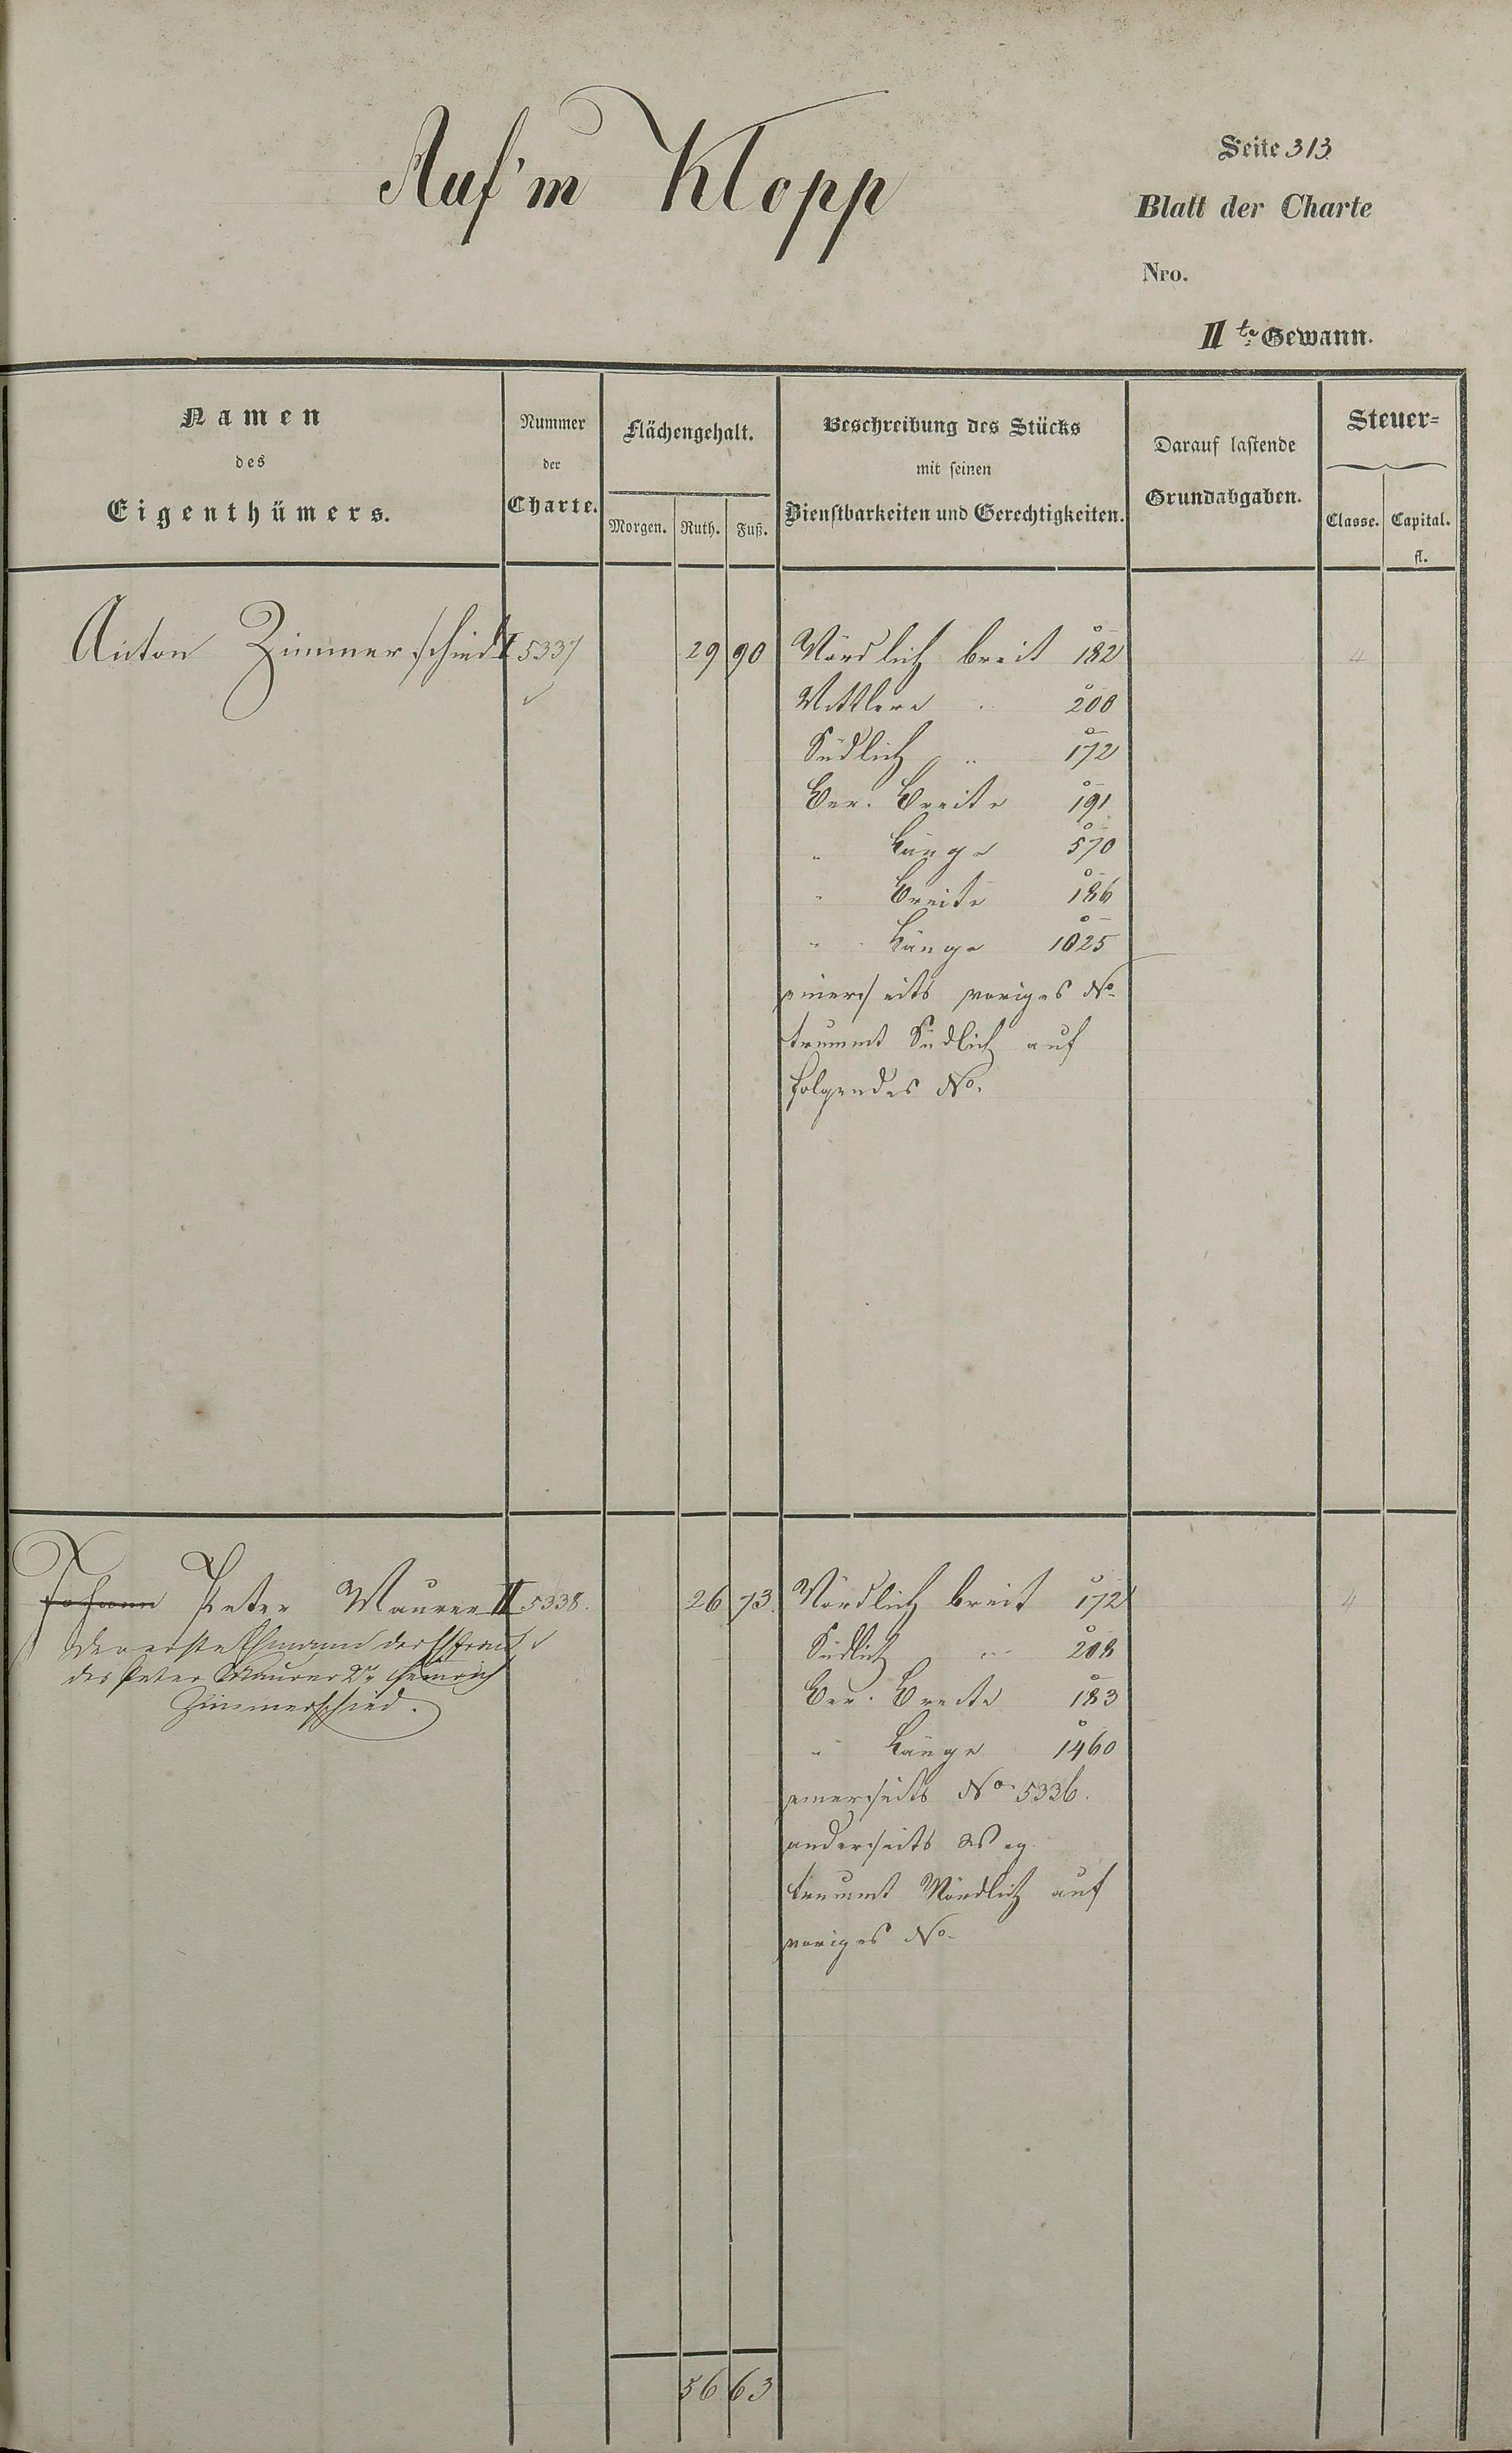 Auf'm Klopp
Seite 313
Blatt der Charte
Nro.
II te Gewann.
Namen
des
Eigenthümers.
Nummer
der
Charte.
Flächengehalt.
Morgen. Ruth. Fuß.
Beschreibung des Stücks
mit seinen
Dienstbarkeiten und Gerechtigkeiten.
Darauf lastende
Grundabgaben.
Steuer-
Classe. Capital.
fl.
Anton Zimmerschied 5337 29 90 Nördlich breit 182 4
Mittlere 200
Südlich " 172
Ber. Breite 191
" Länge 570
" Breite 186
" Länge 1025
einerseits voriges No
trummt Südlich auf
folgendes No.
Johann Peter Maurer II 5338. 26 73. Nördlich breit 172 4
der erste Ehmann der Ehfrau
des Peter Maurer 2r Heinrich
Zimmerschied.
Südlich " 208
Ber. Breite 183
" Länge 1460
einerseits No 5336.
anderseits Weg
trummt Nördlich auf
voriges No
56 63